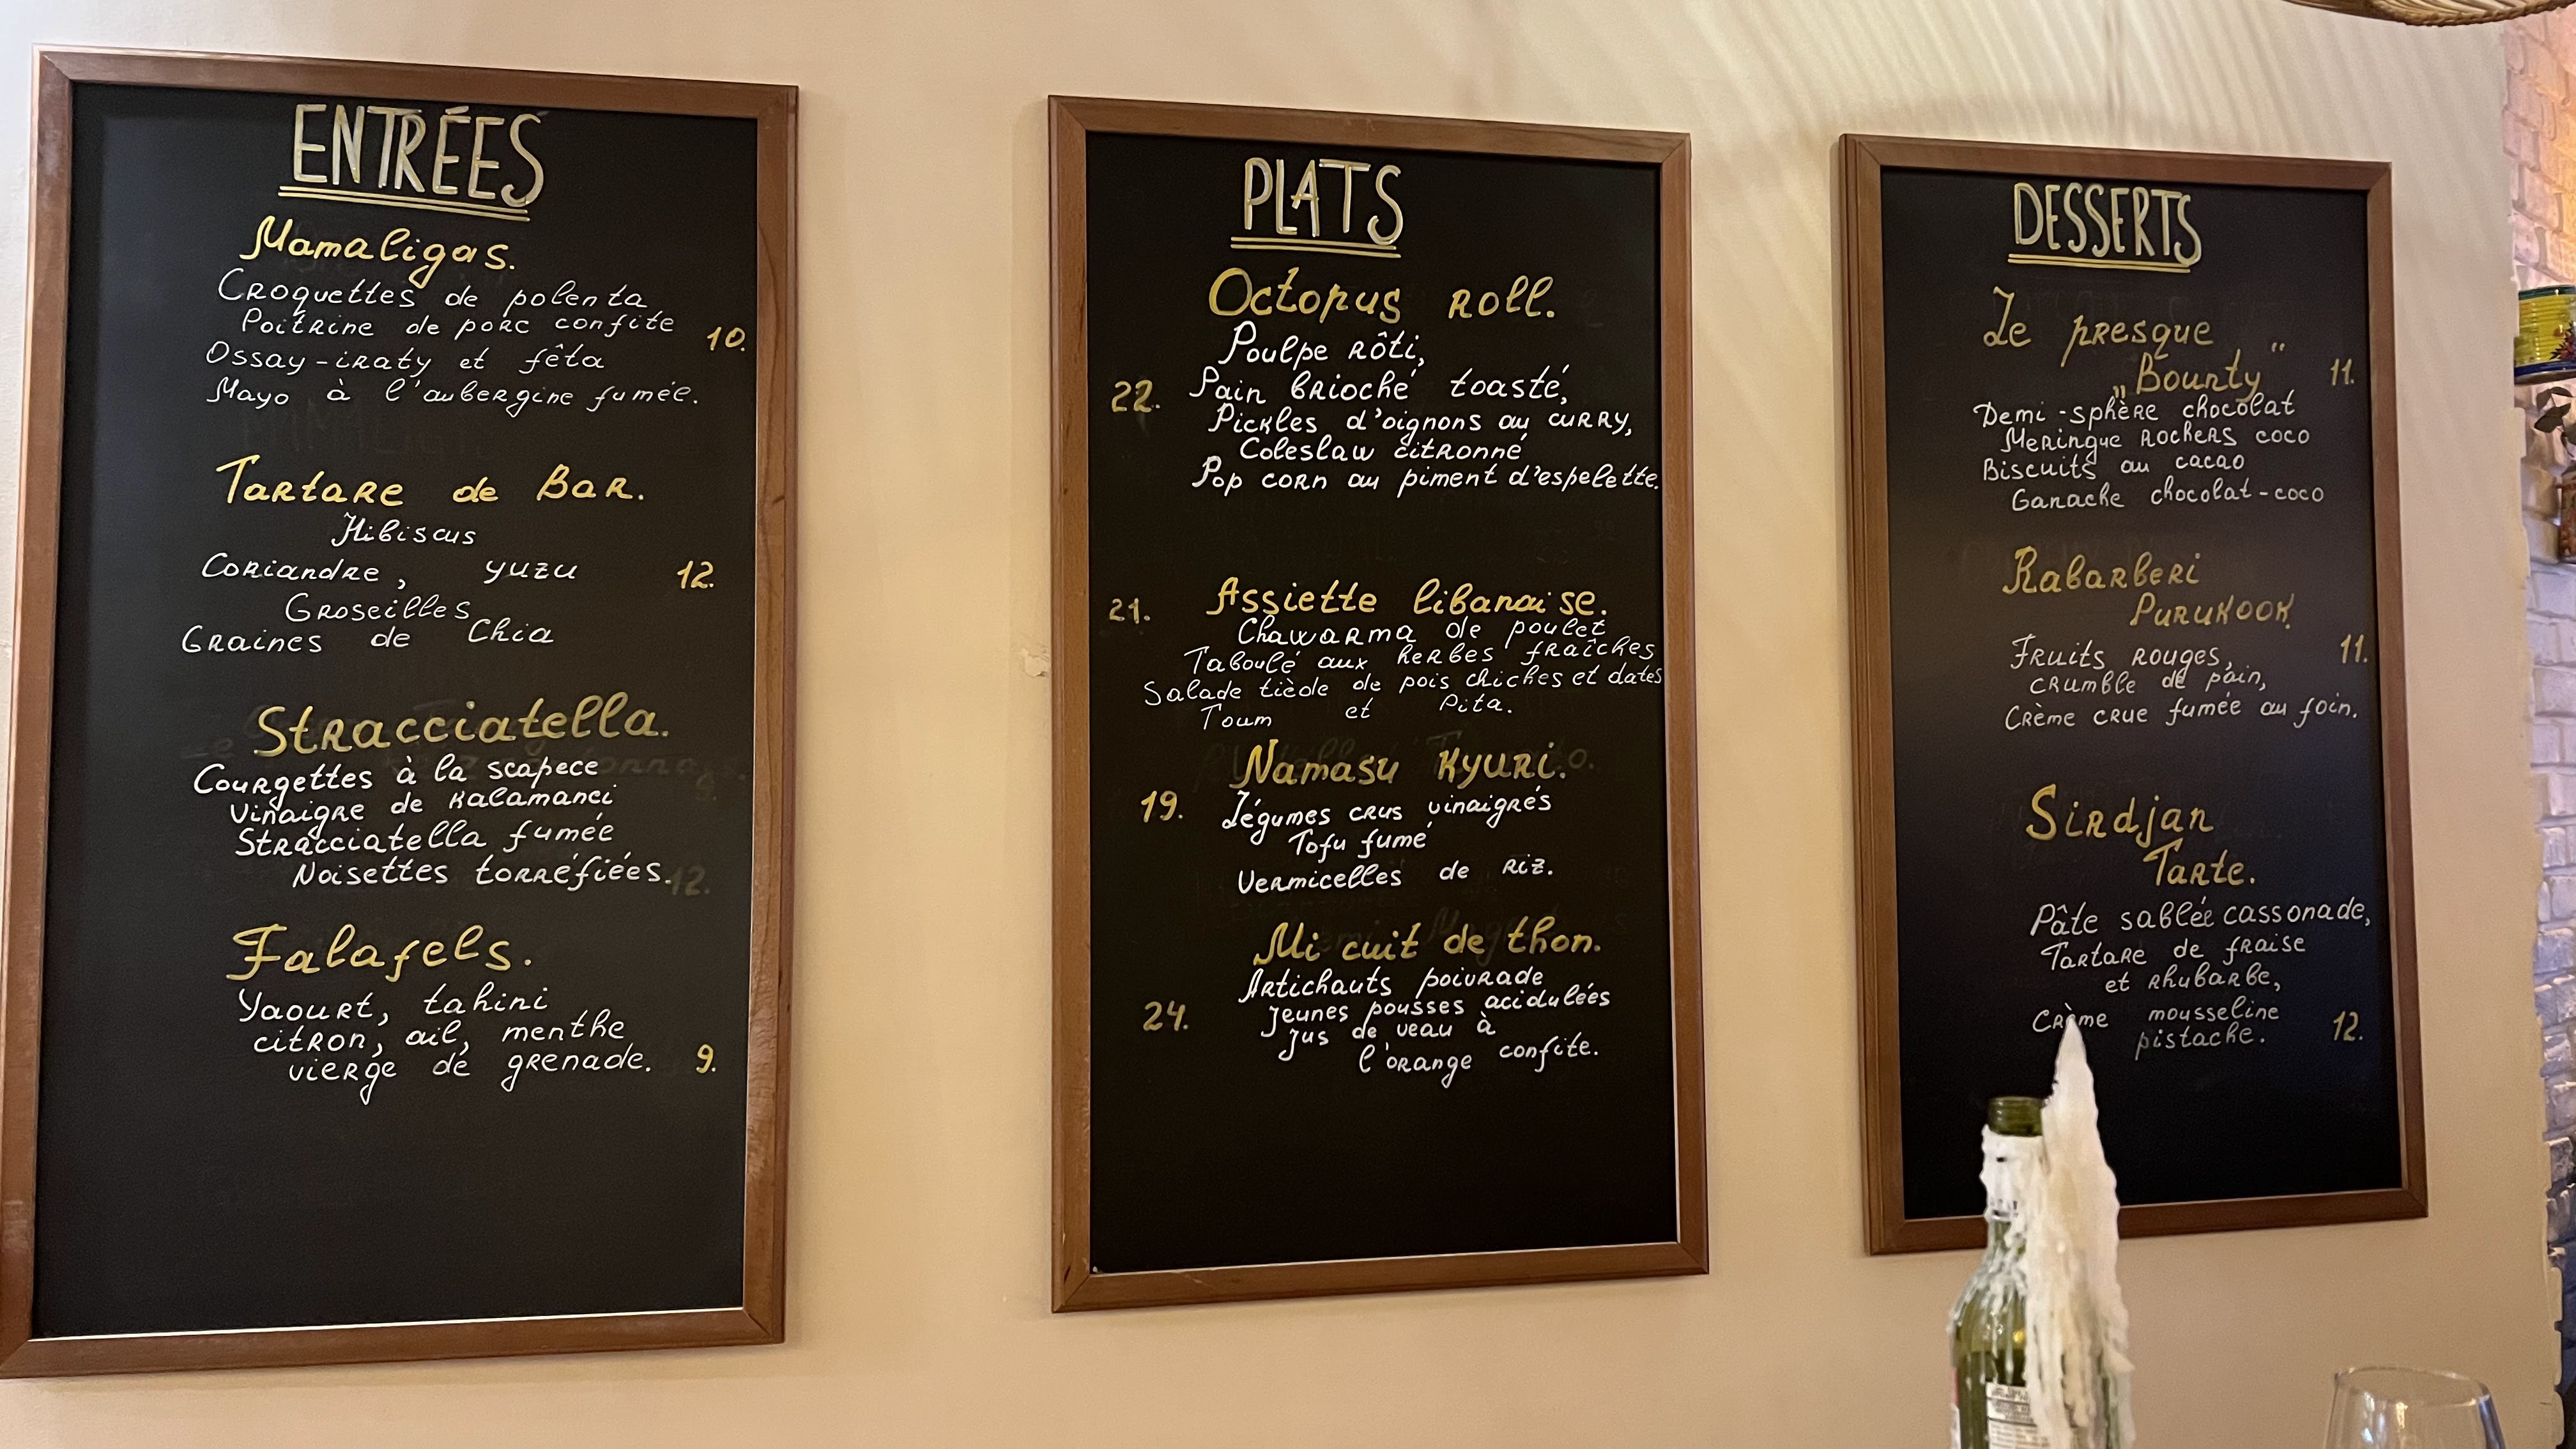 ENTRÉES
Mamaligas.
Croquettes de polenta
Poitrine de porc confite
10.
Ossay-iraty et fêta
Mayo à l'aubergine fumée.
Tartare de Bar.
Hibiscus
Coriandre, yuzu 12.
Groseilles
Graines de Chia
Stracciatella.
Courgettes à la scapece
Vinaigre de kalamanci
Stracciatella fumée
Noisettes torréfiées. 12.
Falafels.
Yaourt, tahini
citron, ail, menthe
vierge de grenade. 9.
PLATS
Octopus roll.
Poulpe rôti,
22. Pain brioché toasté,
Pickles d'oignons au curry,
Coleslaw citronné
Pop corn au piment d'espelette.
21. Assiette libanaise.
Chawarma de poulet
Taboulé aux herbes fraîches
Salade tiède de pois chiches et dates
Toum et Pita.
Namasu Kyuri.
19. Légumes crus vinaigrés
Tofu fumé
Vermicelles de riz.
Mi cuit de thon.
Artichauts poivrade
Jeunes pousses acidulées
24. Jus de veau à
l'orange confite.
DESSERTS
Le presque
„Bounty" 11.
Demi-sphère chocolat
Meringue rochers coco
Biscuits au cacao
Ganache chocolat-coco
Rabarberi
Purukook
Fruits rouges, 11.
crumble de pain,
Crème crue fumée au foin.
Sirdjan
Tarte.
Pâte sablée cassonade,
Tartare de fraise
et rhubarbe,
Crème mousseline
pistache. 12.